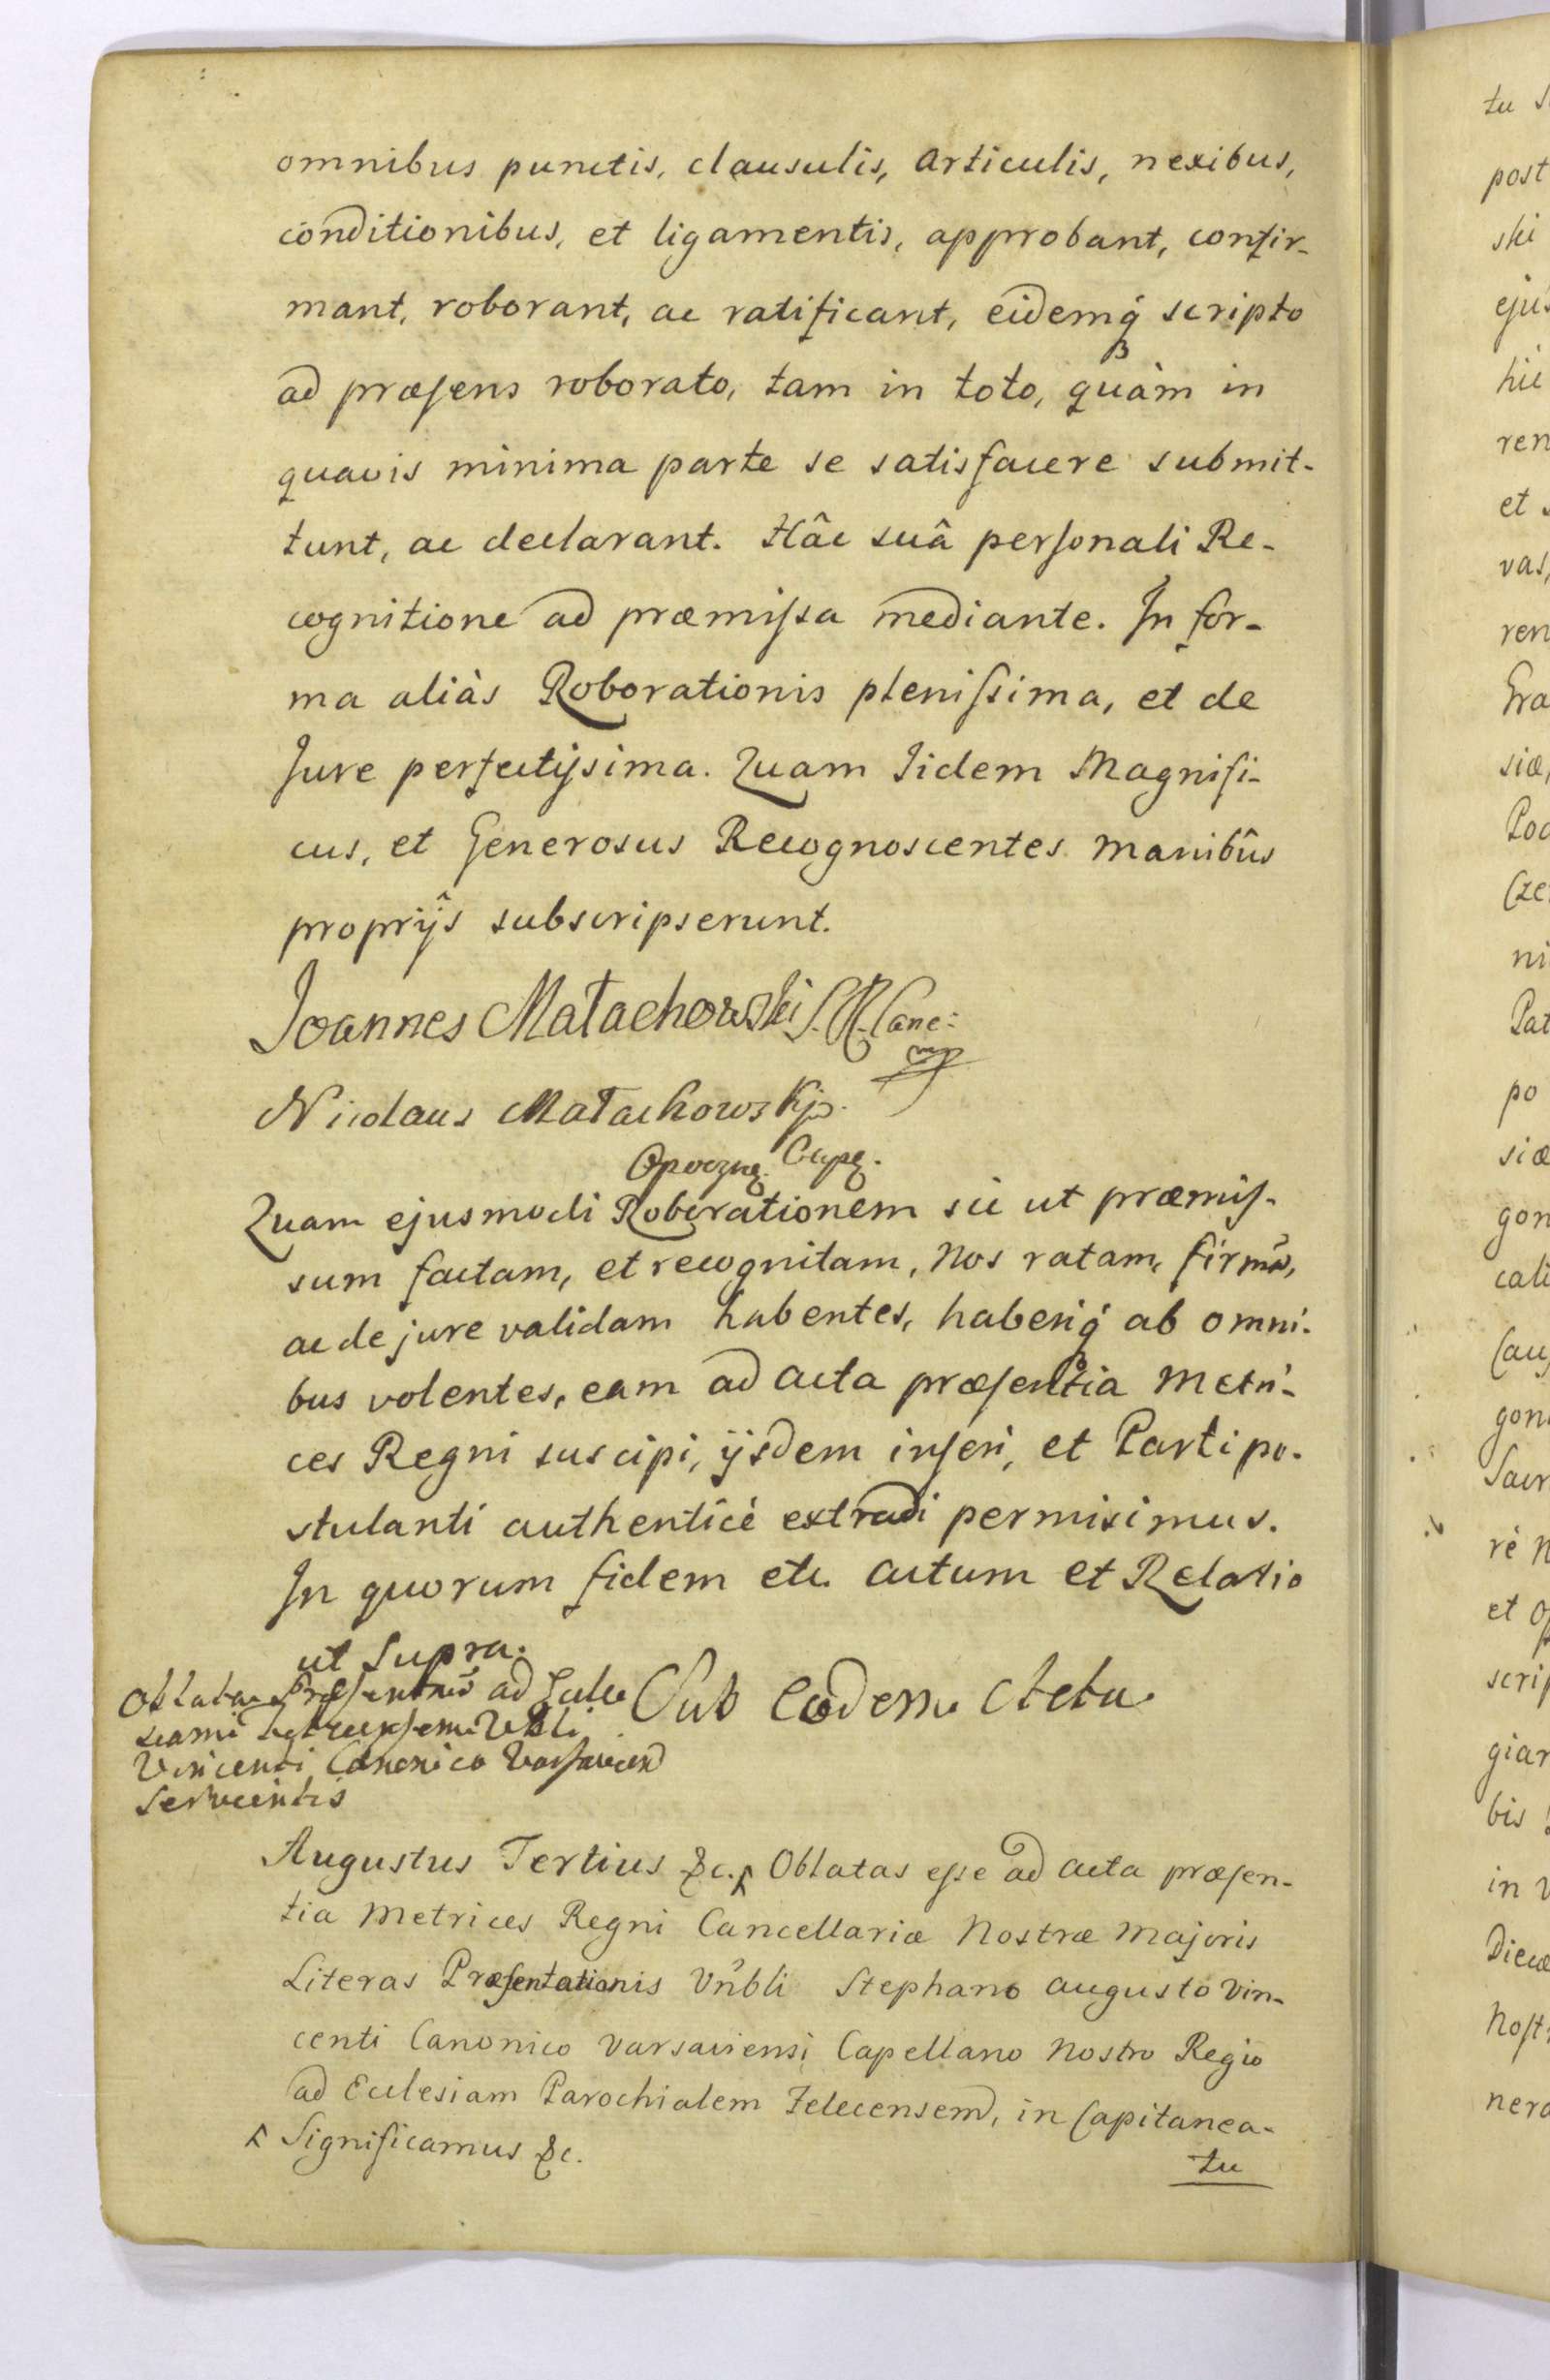 omnibus punctis, clausulis, articulis, nexibus,
conditionibus, et ligamentis, approbant, confir-
mant, roborant, ac ratificant, eidemq́ scripto
ad præsens roborato, tam in toto, quàm in
quavis minima parte se satisfacere submit-
tunt, ac declarant. Hâc suâ personali Re-
cognitione ad præmissa mediante. In for-
ma aliàs Roborationis plenissima, et de
Jure perfectissima. Quam Iidem Magnifi-
cus, et Generosus Recognoscentes manibûs
proprijs subscripserunt.
Joannes Małachowski S. R. Canc:
mp
Nicolaus Małachowskj
Quam ejusmodi Roborationem sic ut præmis-
sum factam, et recognitam, Nos ratam, firmã,
ac de jure validam habentes, haberiq́ ab omni-
bus volentes, eam ad acta præsentia Metri-
ces Regni suscipi, ijsdem inseri, et Parti po-
stulanti authenticè extradi permisimus.
In quorum fidem etc. Actum et Relatio
ut Supra.
Sub Eodem Actu
Oblata ad
Vincenti Canonico
Servientis
Augustus Tertius &c. Oblatas esse ad acta præsen-
tia Metrices Regni Cancellariæ Nostræ Majoris
Literas Præsentationis Vnbli Stephano Augusto Vin-
centi Canonico Varsaviensi Capellano Nostro Regio
ad Ecclesiam Parochialem Zelecensem, in Capitanea-
Significamus &c.
tu
tu
post
ski
hic
ren
et
vas,
ren
Gra
siæ,
ni
Pat
po
siæ
gon
cali
gon
rè
et
scrip
giar
bis
in
Diecæ
Nost
nera